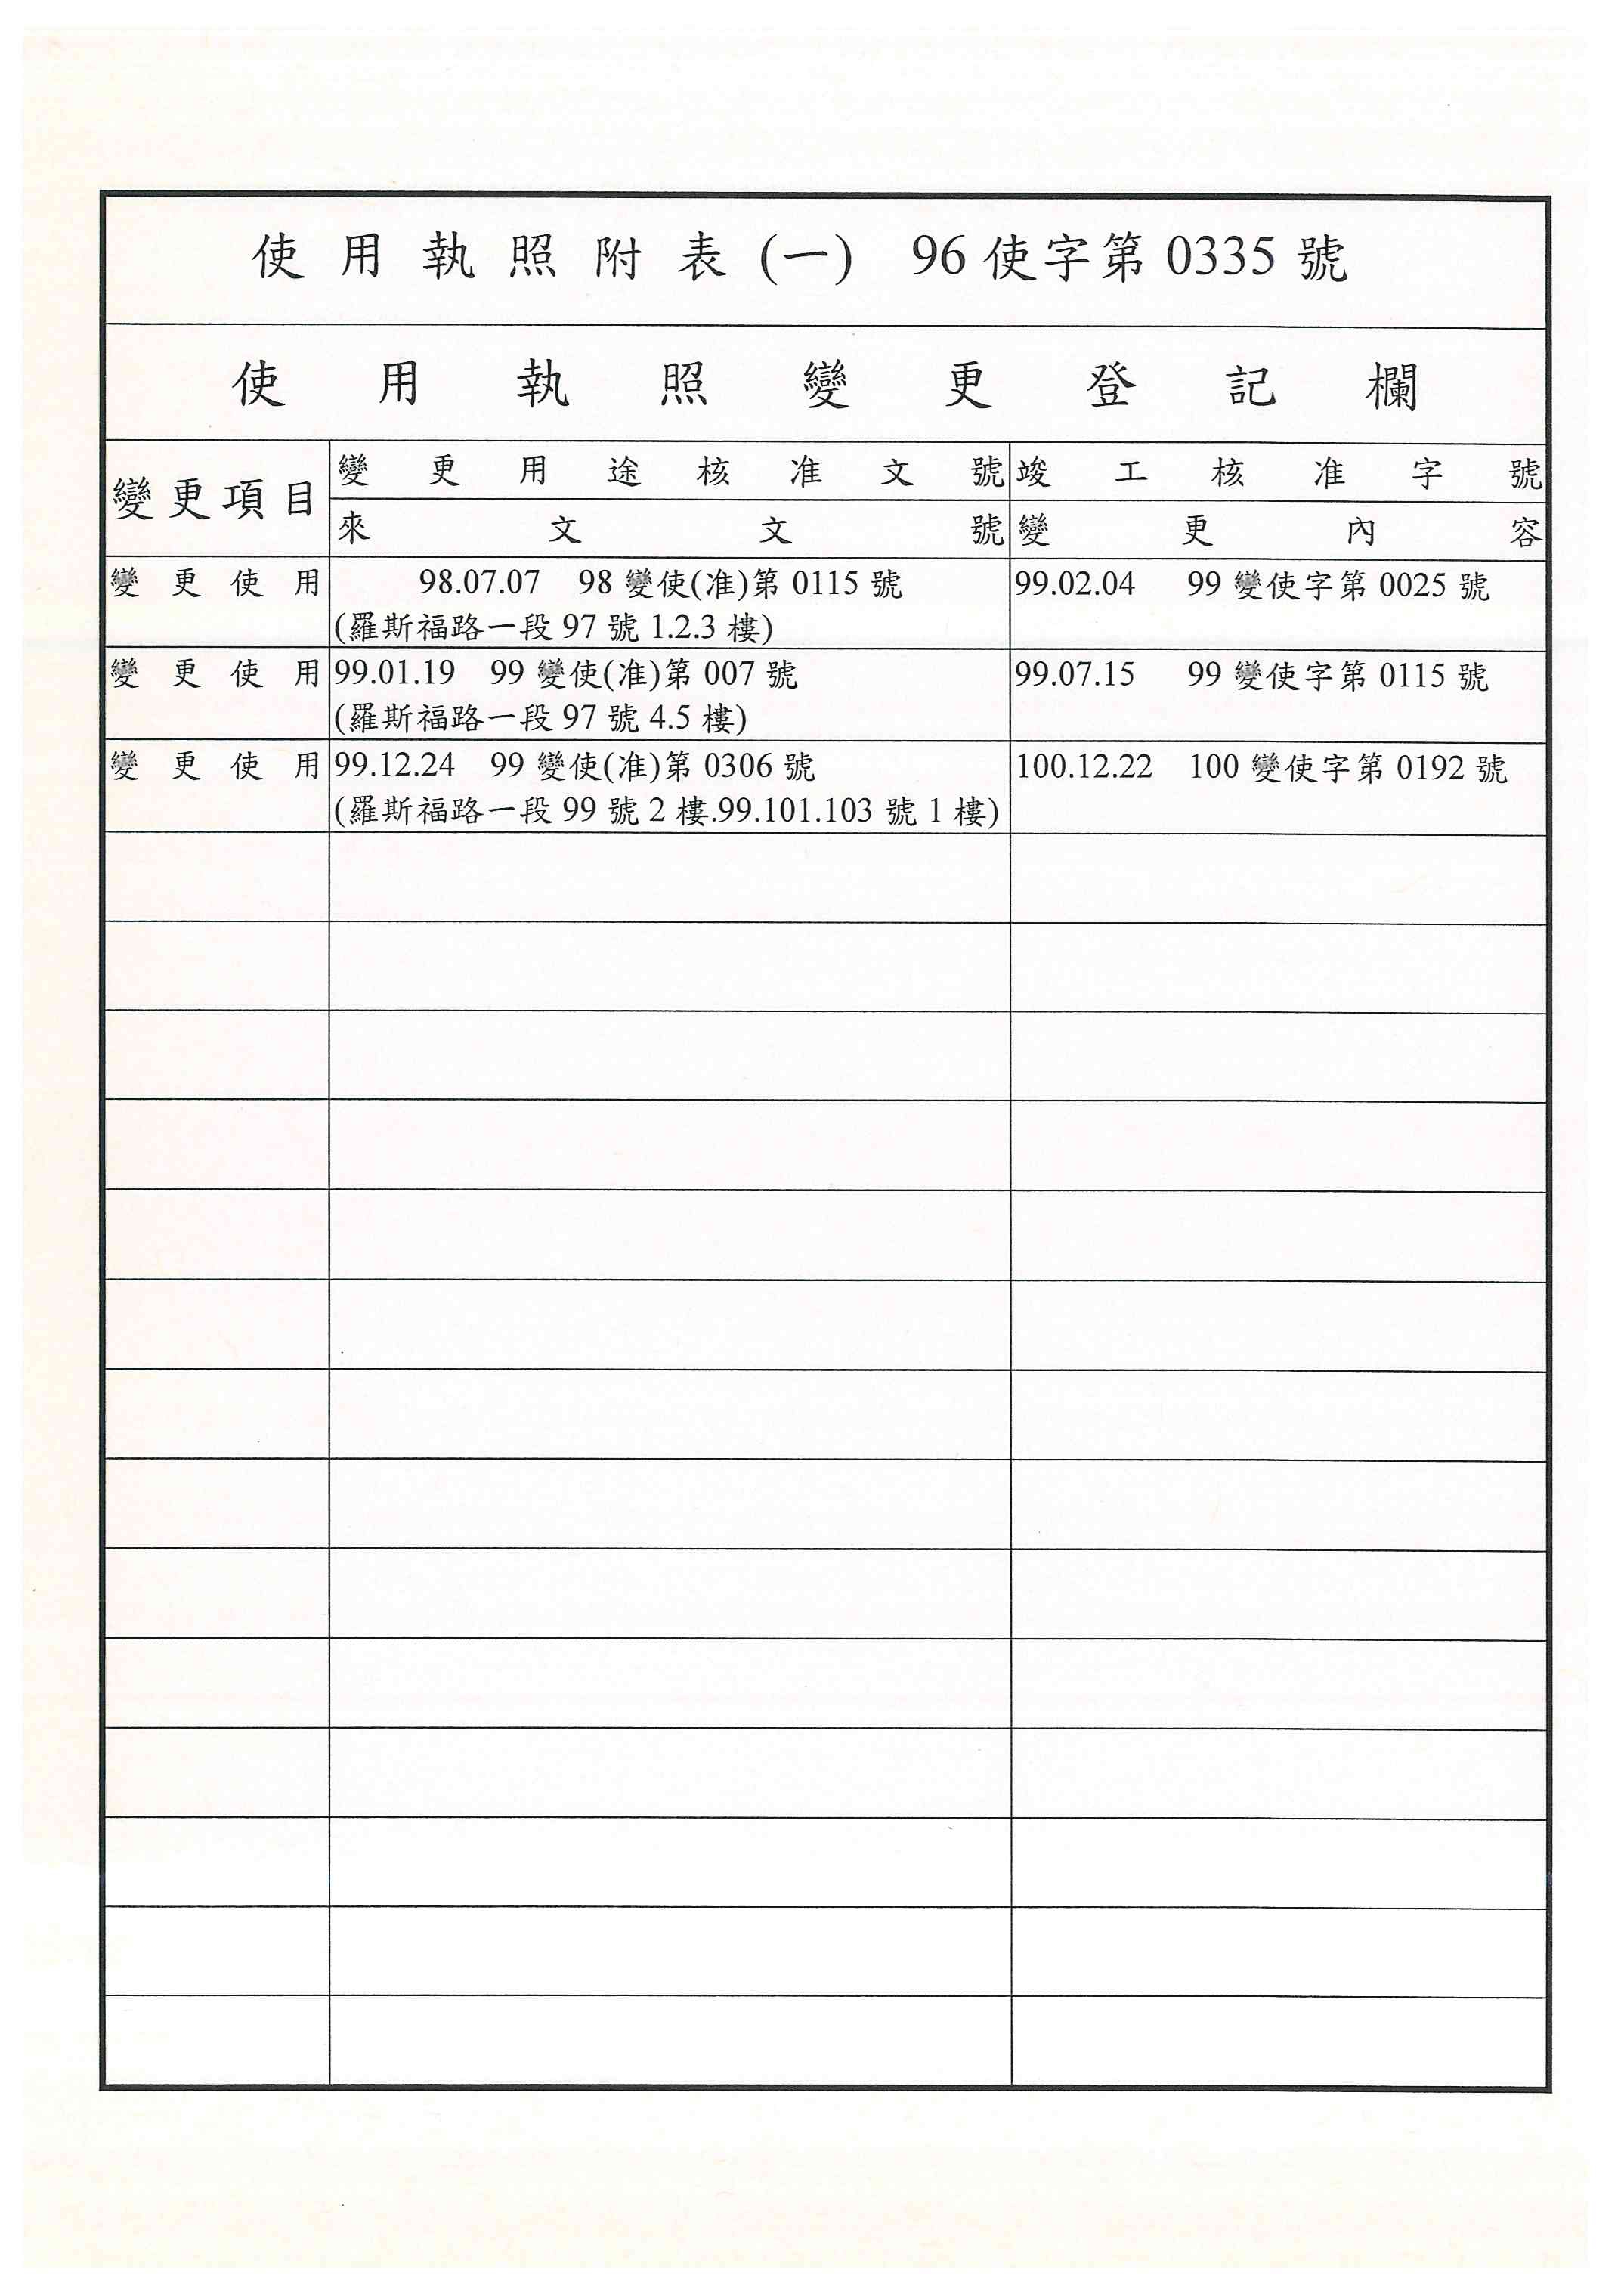 使用執照附表(一) 96使字第0335號
使用執照變更登記欄
變更項目
變更用途核准文號 竣工核准字號
來文文號 變更內容
變更使用 98.07.07 98變使(准)第0115號 99.02.04 99變使字第0025號
(羅斯福路一段97號1.2.3樓)
變更使用 99.01.19 99變使(准)第007號 99.07.15 99變使字第0115號
(羅斯福路一段97號4.5樓)
變更使用 99.12.24 99變使(准)第0306號 100.12.22 100變使字第0192號
(羅斯福路一段99號2樓.99.101.103號1樓)